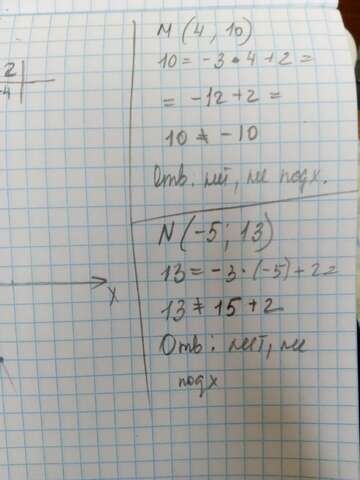 2
-4
M (4; 10)
10 = -3 • 4 + 2 =
= -12 + 2 =
10 ≠ -10
Отв. нет, не подх.
N (-5; 13)
13 = -3 · (-5) + 2 =
13 ≠ 15 + 2
Отв: нет, не
подх
x